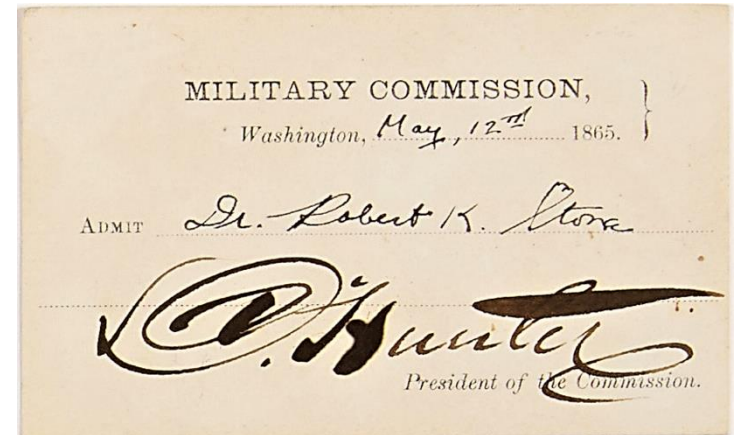 MILITARY COMMISSION,
Washington, May, 12nd 1865.
ADMIT Dr. Robert K. Stone
D. Hunter
President of the Commission.